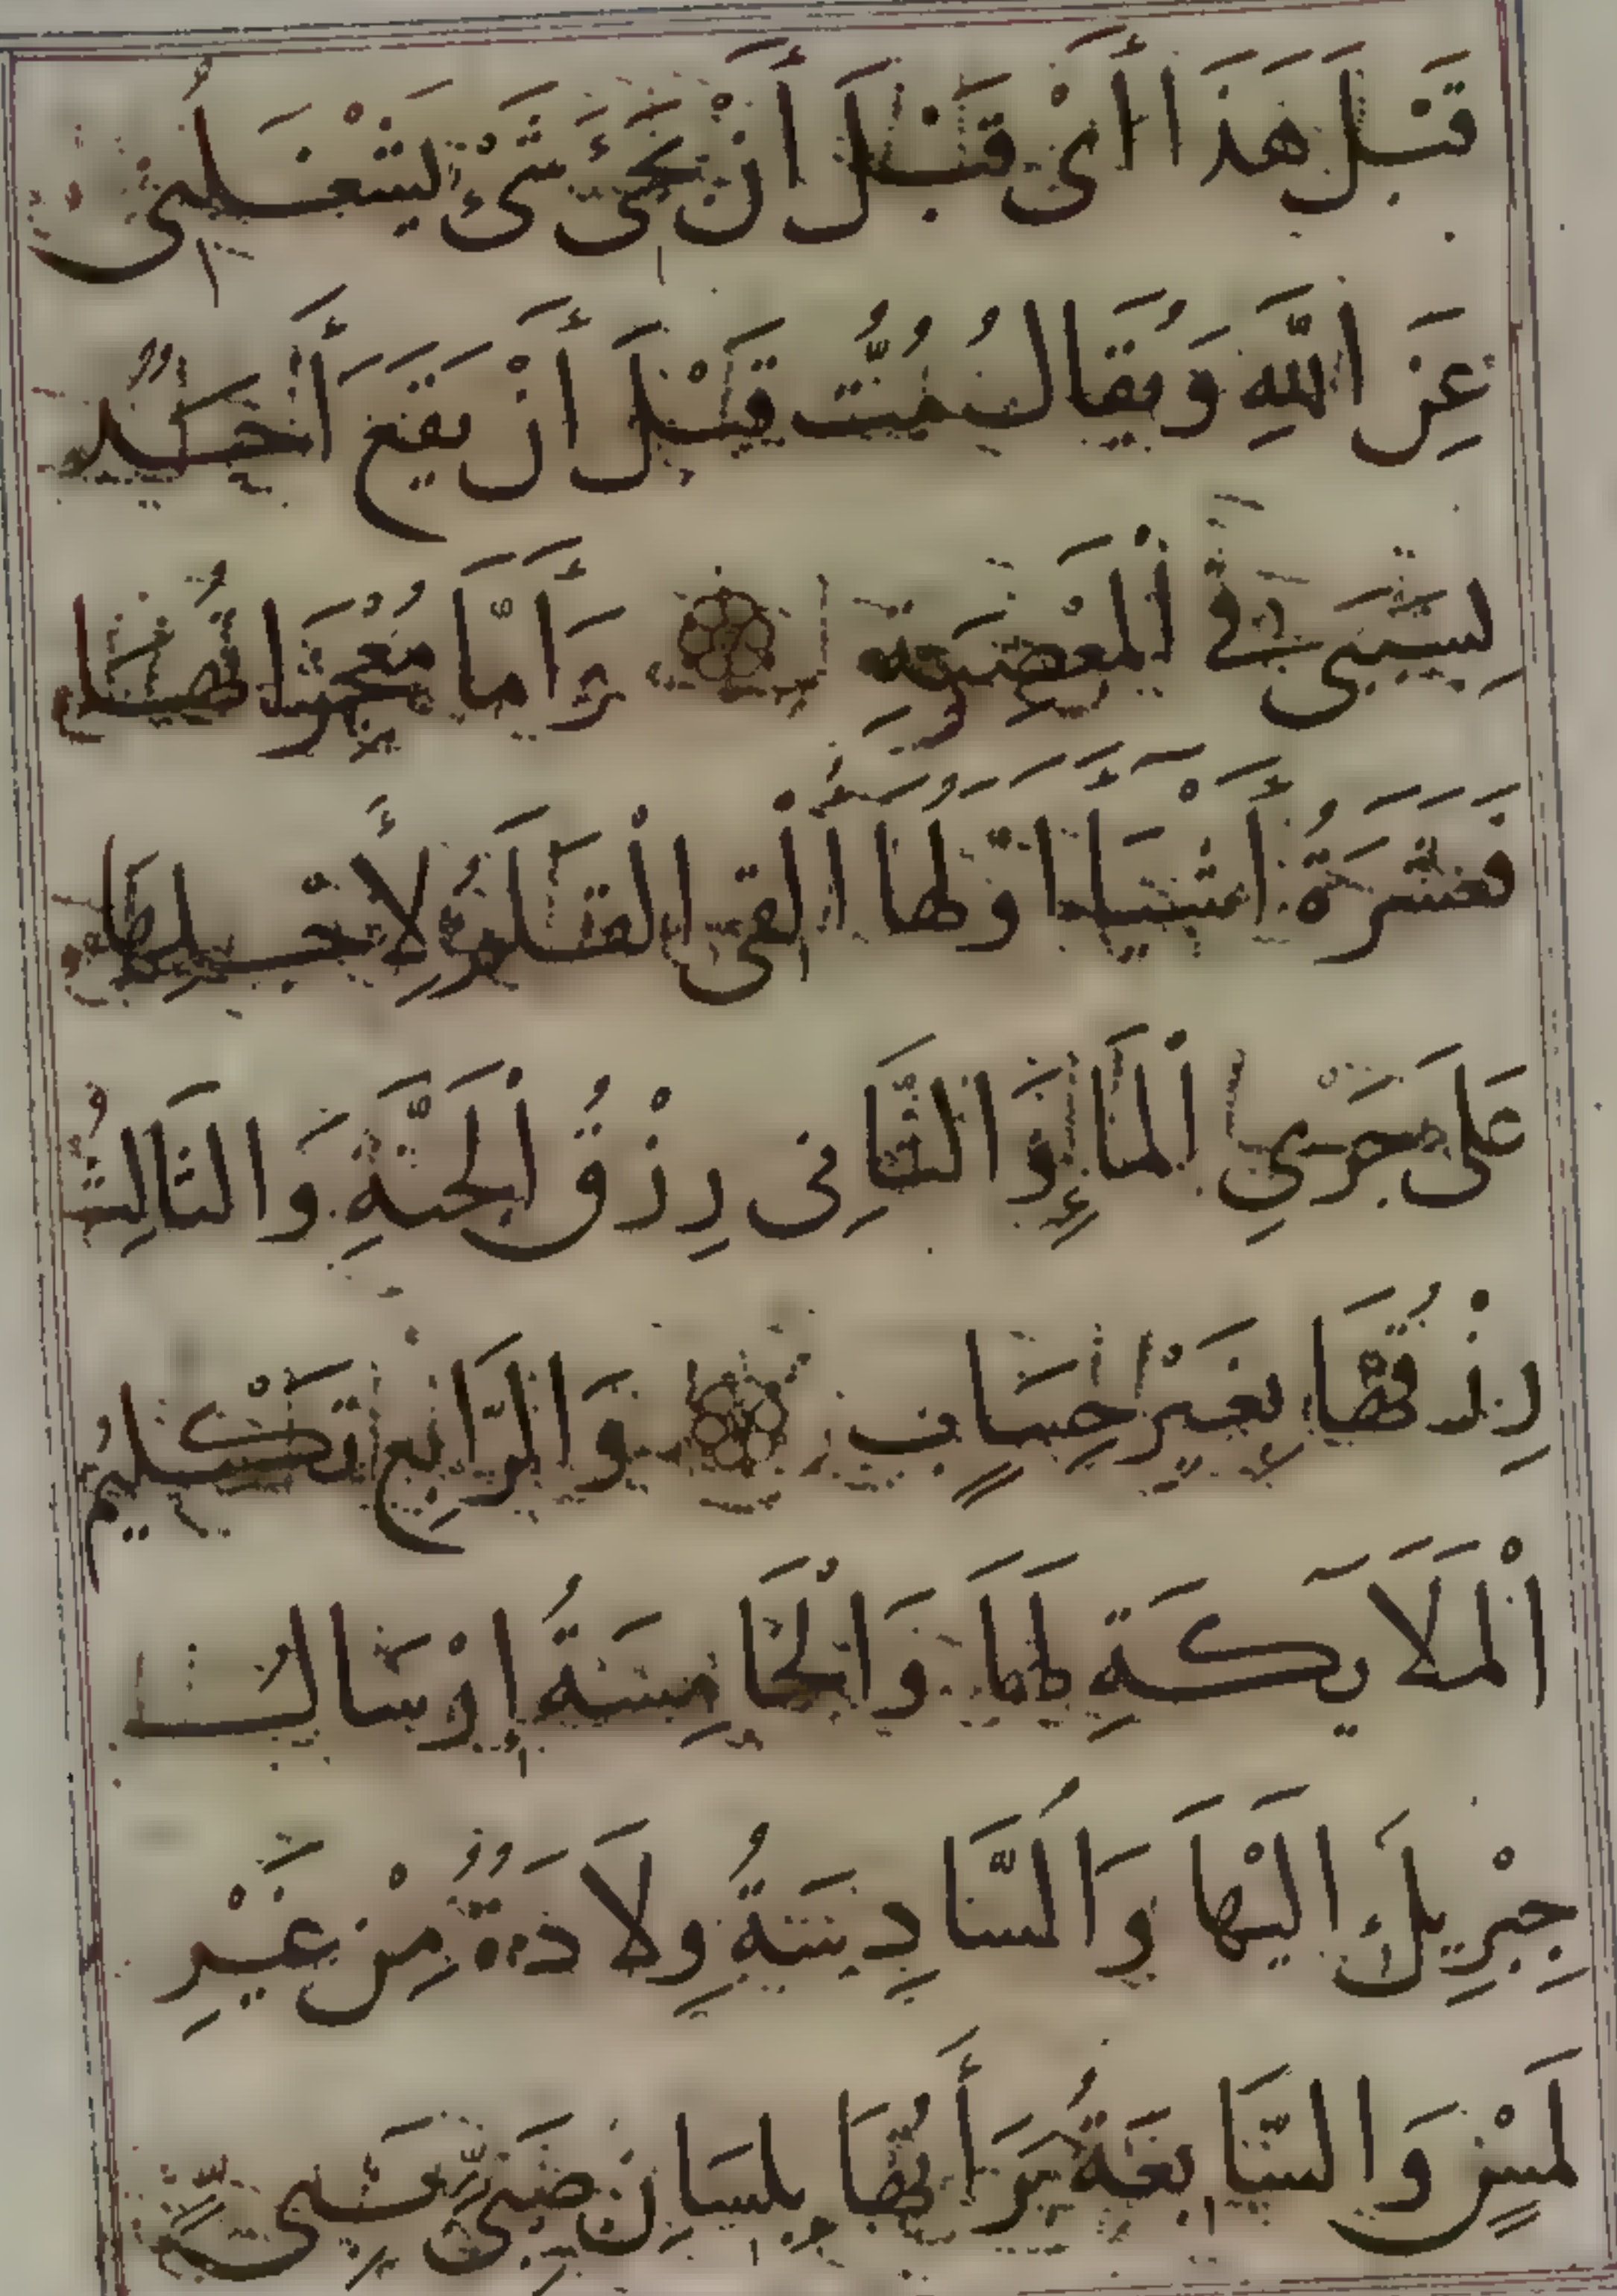 قَبْلَ هَذَا أَىْ قَبْلَ أَنْ يَجَىَٔ شَىْءٌ يَشْغَلُنِى
عَنِ اللَّهِ وَيُقَالُ مُتُّ قَبْلَ أَنْ يَقَعَ أَحَدٌ
لِسَبَبِى فِى الْمَعْصِيَةِ وَأَمَّا مُعْجِزَاتُهَا
فَعَشَرَةُ أَشْيَاءَ اَوَّلُهَا أَلْقَى الْقَلَمَ لِأَجْلِهَا
عَلَى جَرْىِ الْمَاءِ وَالثَّانِى رِزْقُ الْجَنَّةِ وَالثَّالِثُ
رِزْقُهَا بِغَيْرِ حِسَابٍ وَالرَّابِعُ تَكْلِيمُ
الْمَلَآيِكَةِ لَهَا وَالْخَامِسَةُ إِرْسَالُ
جِبْرِيلَ اِلَيْهَا وَالسَّادِسَةُ وِلَادَةٌ مِنْ غَيْرِ
لَمْسٍ وَالسَّابِعَةُ بَرَأَتُهَا بِلِسَانِ صَبِىٍّ